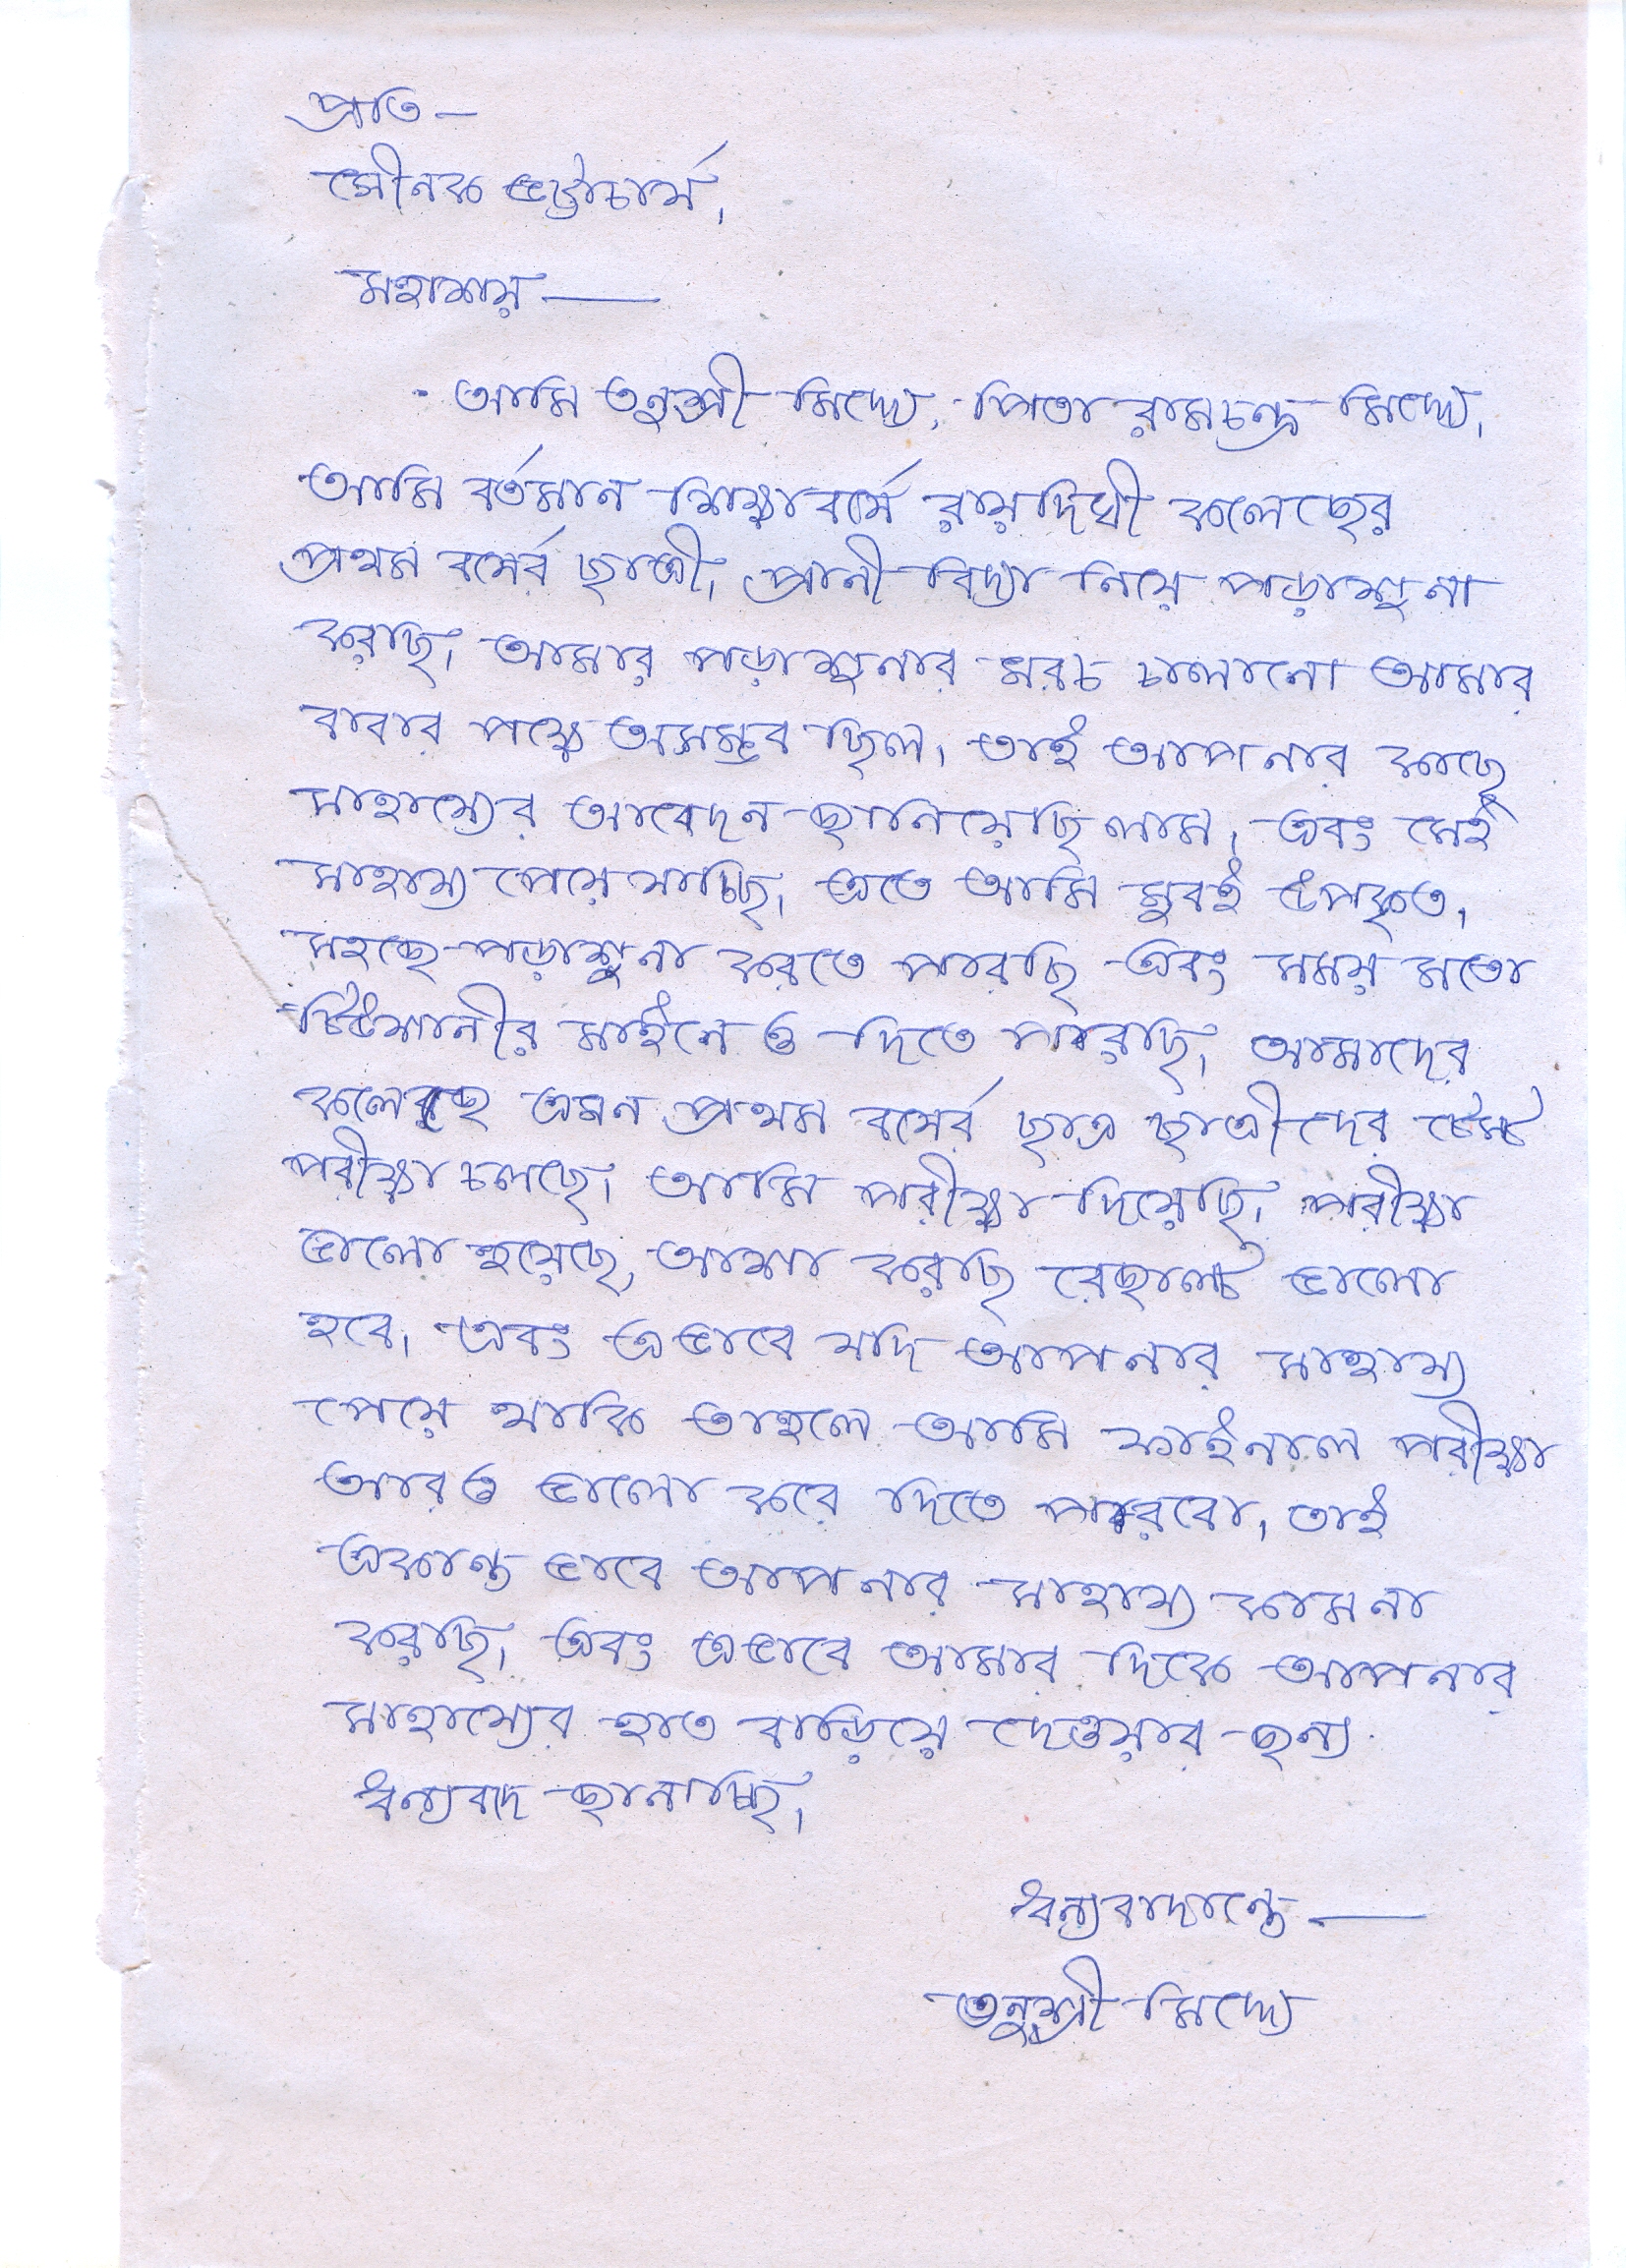 প্রতি —
সৌনক ভট্টাচার্য,
মহাশয় —
আমি তনুশ্রী মিদ্যে, পিতা রামচন্দ্র মিদ্যে,
আমি বর্তমান শিক্ষাবর্ষে রায়দিঘী কলেজের
প্রথম বর্ষের ছাত্রী, প্রানী বিদ্যা নিয়ে পড়াশুনা
করছি, আমার পড়াশুনার খরচ চালানো আমার
বাবার পক্ষে অসম্ভব ছিল, তাই আপনার কাছে
সাহায্যের আবেদন জানিয়েছিলাম, এবং সেই
সাহায্য পেয়ে যাচ্ছি, এতে আমি খুবই উপকৃত,
সহজে পড়াশুনা করতে পারছি এবং সময় মতো
টিউশানীর মাইনে ও দিতে পারছি, আমাদের
কলেজে এখন প্রথম বর্ষের ছাত্র ছাত্রীদের টেস্ট
পরীক্ষা চলছে, আমি পরীক্ষা দিয়েছি, পরীক্ষা
ভালো হয়েছে, আশা করছি রেজাল্ট ভালো
হবে, এবং এভাবে যদি আপনার সাহায্য
পেয়ে থাকি তাহলে আমি ফাইনাল পরীক্ষা
আরও ভালো করে দিতে পারবো, তাই
একান্ত ভাবে আপনার সাহায্য কামনা
করছি, এবং এভাবে আমার দিকে আপনার
সাহায্যের হাত বাড়িয়ে দেওয়ার জন্য
ধন্যবাদ জানাচ্ছি,
ধন্যবাদান্তে —
তনুশ্রী মিদ্যে